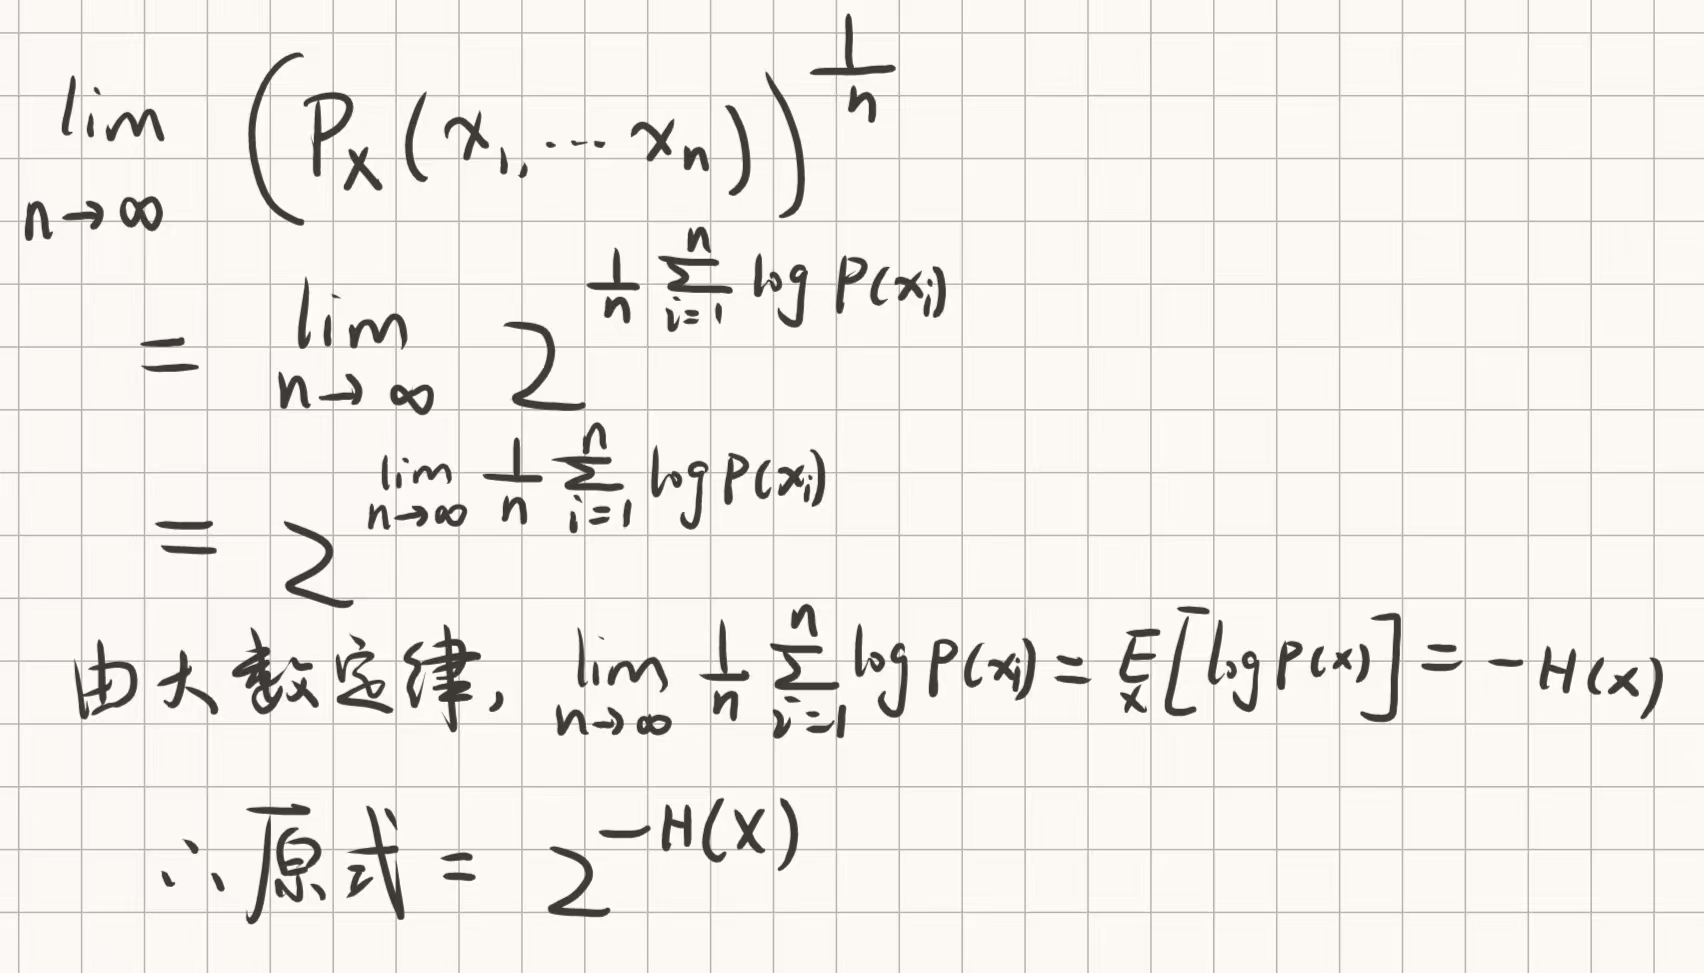 lim_{n→∞} (P_X(x_1, ... x_n))^{1/n}
= lim_{n→∞} 2^{1/n ∑_{i=1}^{n} log P(x_i)}
= 2^{lim_{n→∞} 1/n ∑_{i=1}^{n} log P(x_i)}
由大数定律, lim_{n→∞} 1/n ∑_{i=1}^{n} log P(x_i) = E_x[log P(x)] = -H(x)
∴ 原式 = 2^{-H(X)}